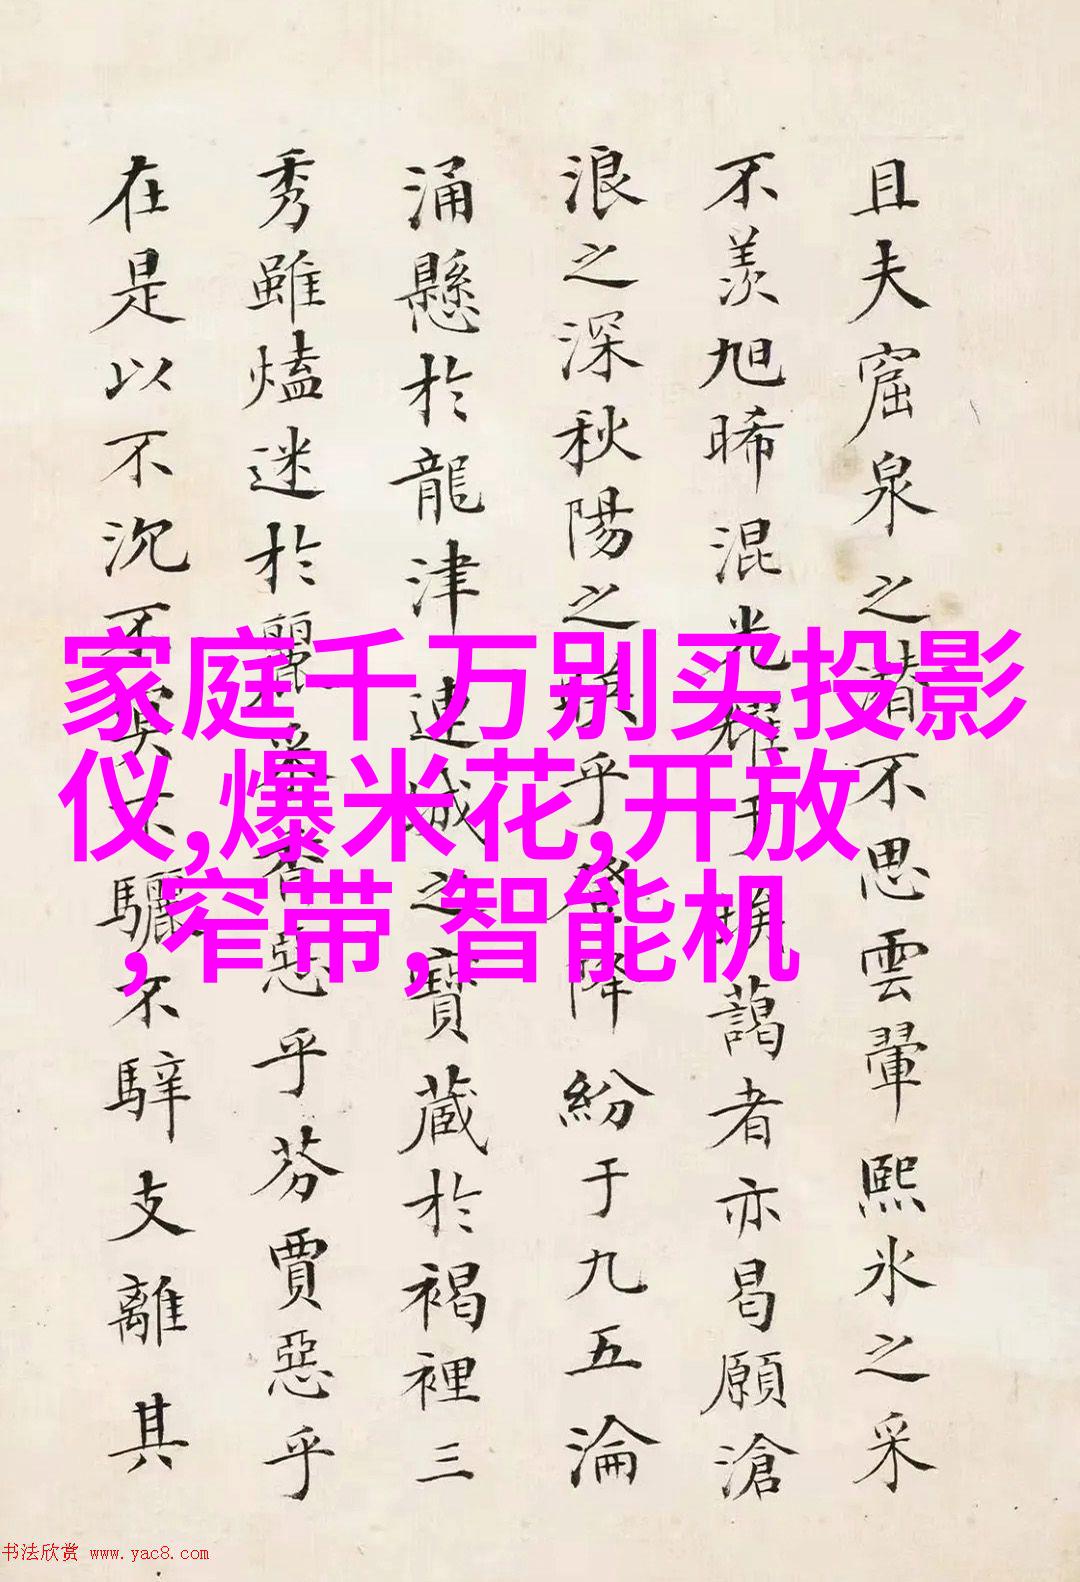 且夫窟泉之不思雲翬熙氷之采
不羨旭晞混光耀于埃藹者亦曷願滄
浪之深秋陽之乎登降紛于九五淪
涌懸於龍津連城之寶藏於褐裡三
秀雖熆迷於麗采香惡乎芬賈惡乎
在是以不沉不冥不驪不騂支離其
家庭千万别买投影
仪,爆米花,开放
,窄带,智能机
书法欣赏 www.yac8.com